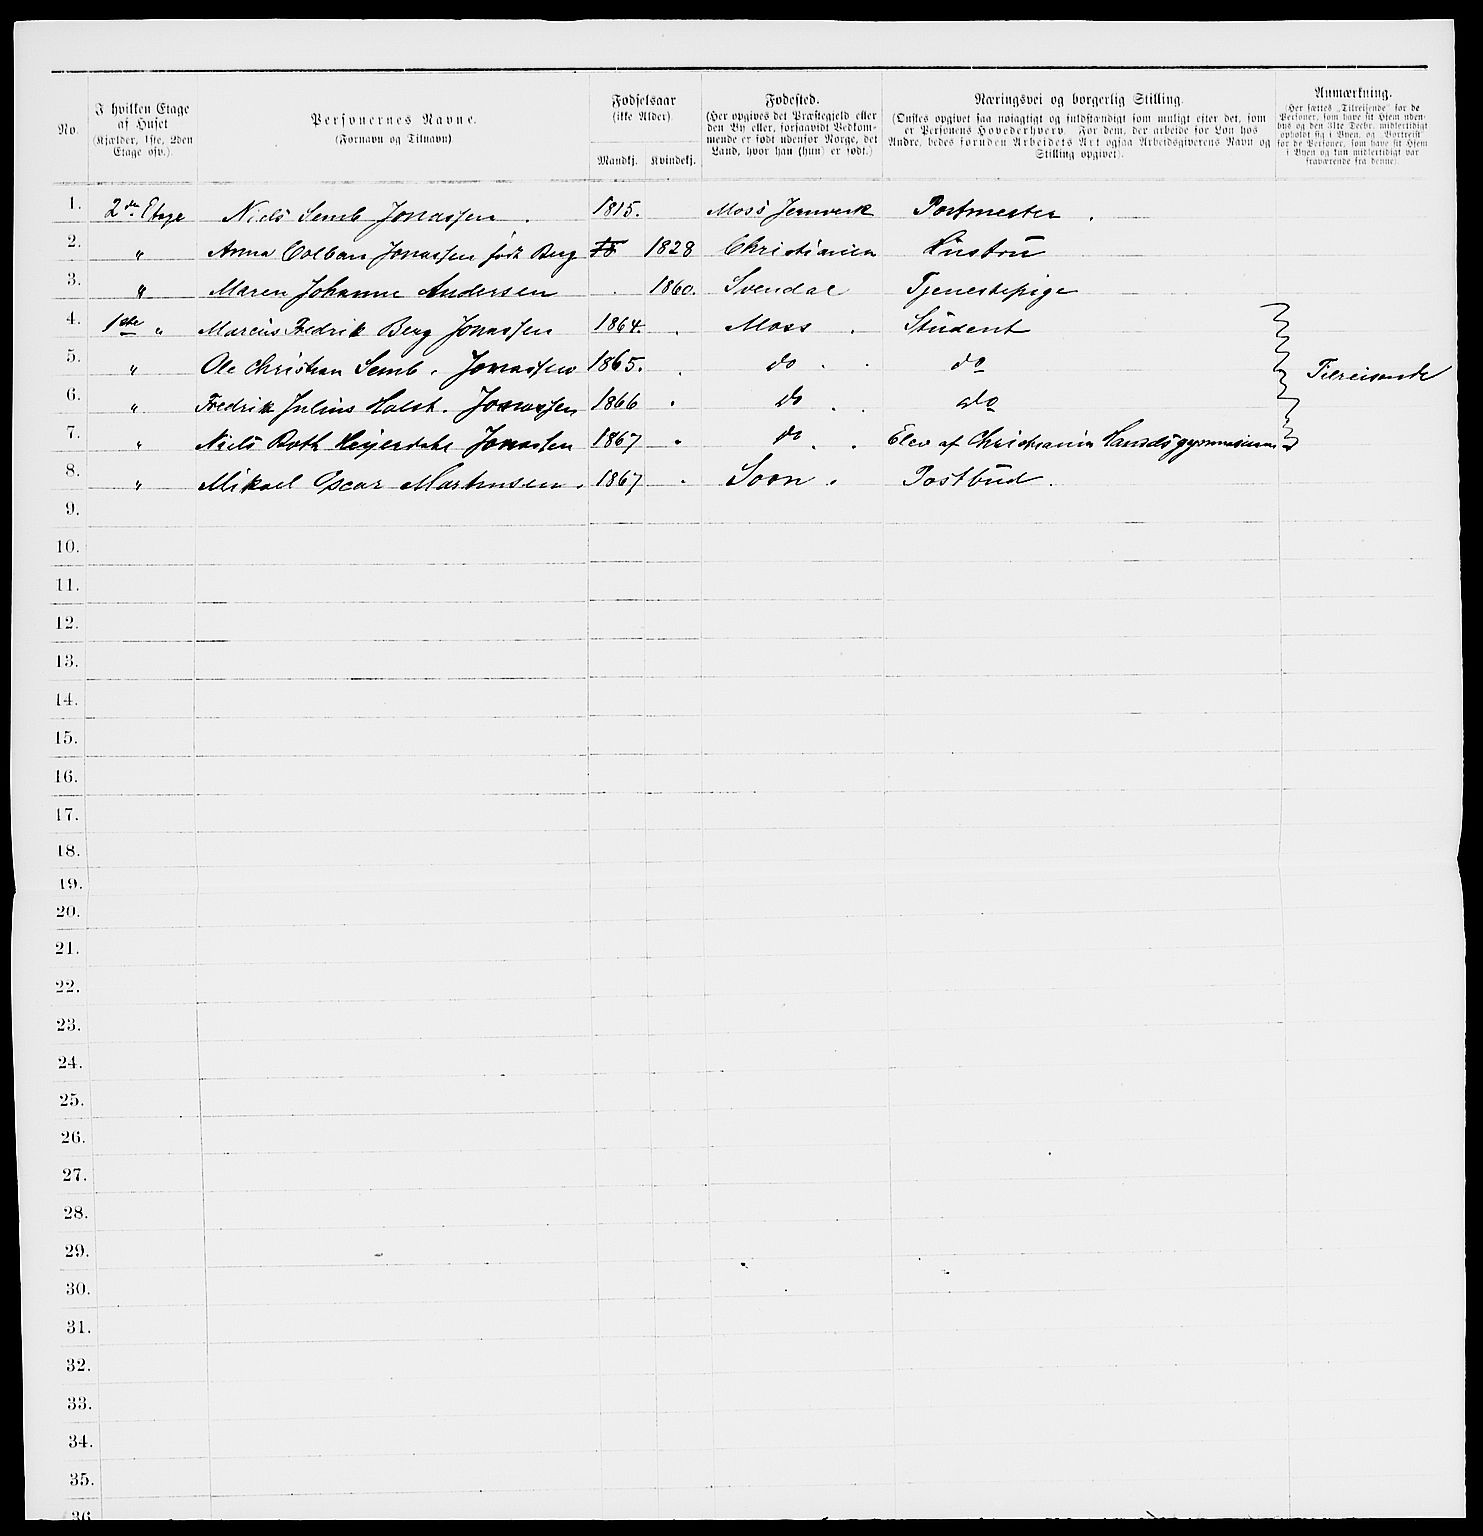 No.
I hvilken Etage af Huset
(Kjælder, 1ste, 2den Etage osv.).
Personernes Navne.
(Fornavn og Tilnavn)
Fødselsaar
(ikke Alder).
Mandkj. Kvindekj.
Fødested.
(Her opgives det Præstegjeld eller
den By eller, forsaavidt Vedkom-
mende er født udenfor Norge, det
Land, hvor han (hun) er født.)
Næringsvei og borgerlig Stilling.
(Ønskes opgivet saa nøiagtigt og fuldstændigt som muligt efter det, som
er Personens Hovederhverv. For dem, der arbeide for Løn hos
Andre, bedes foruden Arbeidets Art ogsaa Arbeidsgiverens Navn og
Stilling opgivet).
Anmærkning.
(Her sættes „Tilreisende“ for de
Personer, som have sit Hjem uden-
bys og den 31te Decbr. midlertidigt
opholdt sig i Byen, og „Bortreist“
for de Personer, som have sit Hjem
i Byen og kun midlertidigt var
fraværende fra denne).
1. 2den Etage Niels Semb Jonassen . 1815. Moss Jernverk Postmester .
2. " Anna Colban Jonassen født Berg 1828 Christiania Hustru
3. " Maren Johanne Andersen 1860. Svendal Tjenestepige
4. 1ste " Marcus Fredrik Berg Jonassen 1864. Moss Student
5. " Ole Christian Semb . Jonassen 1865. do do Tilreisende
6. " Fredrik Julius Holst . Jonassen 1866 do do
7. " Niels Roth Heyerdahl Jonassen 1867 do Elev af Christiania Handelsgymnasium
8. " Mikael Oscar Martinsen . 1867 Soon . Postbud .
9.
10.
11.
12.
13.
14.
15.
16.
17.
18.
19.
20.
21.
22.
23.
24.
25.
26.
27.
28.
29.
30.
31.
32.
33.
34.
35.
36